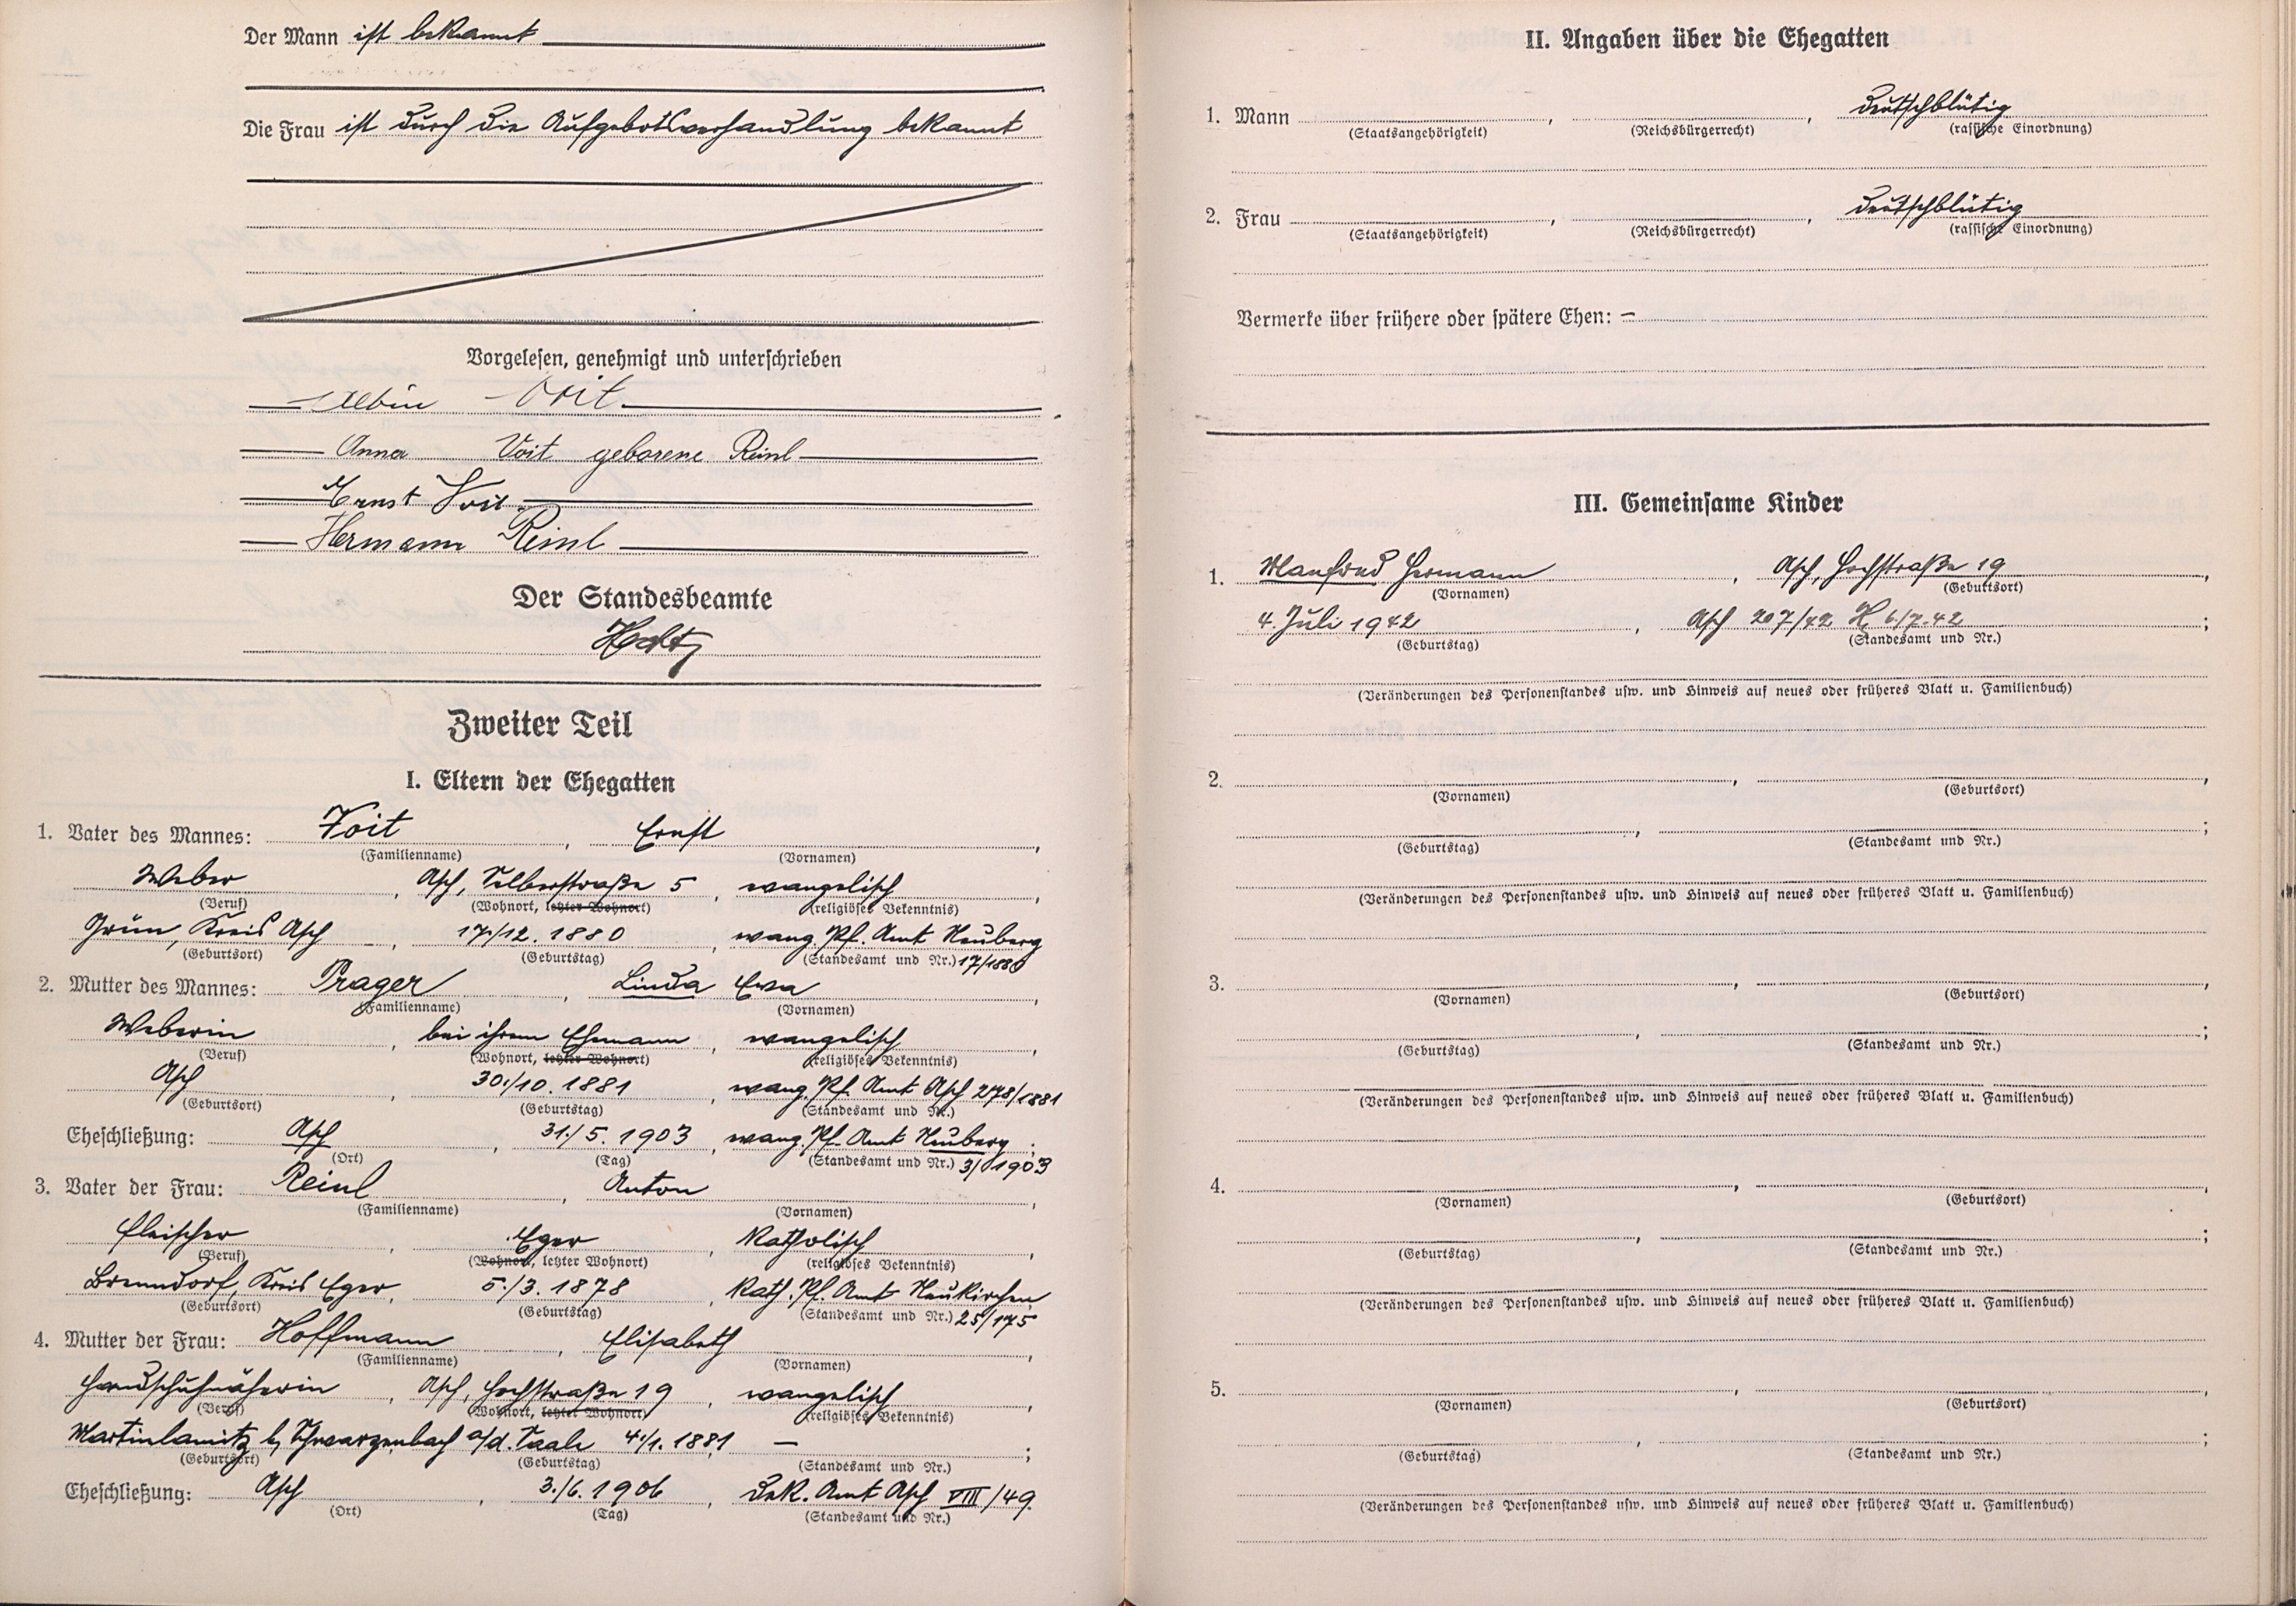 Der Mann ist bekannt
Die Frau ist durch die Aufgebotsverhandlung bekannt
Vorgelesen, genehmigt und unterschrieben
Albin Voit
Anna Voit geborene Reinl
Ernst Voit
Hermann Reinl
Der Standesbeamte
Zweiter Teil
I. Eltern der Ehegatten
1. Vater des Mannes: Voit, Ernst,
(Familienname) (Vornamen)
Weber, Asch, Selberstraße 5, evangelisch,
(Beruf) (Wohnort, letzter Wohnort) (religiöses Bekenntnis)
Grün, Kreis Asch, 17./12. 1880, evang. Pf. Amt Neuberg
(Geburtsort) (Geburtstag) (Standesamt und Nr.) 17/1880
2. Mutter des Mannes: Prager, Linda Eva,
(Familienname) (Vornamen)
Weberin, bei ihrem Ehemann, evangelisch,
(Beruf) (Wohnort, letzter Wohnort) (religiöses Bekenntnis)
Asch, 30./10. 1881, evang. Pf. Amt Asch 278/1881
(Geburtsort) (Geburtstag) (Standesamt und Nr.)
Eheschließung: Asch, 31./5. 1903, evang. Pf. Amt Neuberg;
(Ort) (Tag) (Standesamt und Nr.) 3/1903
3. Vater der Frau: Reinl, Anton,
(Familienname) (Vornamen)
Fleischer, Eger, katholisch,
(Beruf) (Wohnort, letzter Wohnort) (religiöses Bekenntnis)
Brenndorf, Kreis Eger, 5./3. 1878, kath. Pf. Amt Neukirchen
(Geburtsort) (Geburtstag) (Standesamt und Nr.) 25/175
4. Mutter der Frau: Hoffmann, Elisabeth,
(Familienname) (Vornamen)
Handschuhnäherin, Asch, Hochstraße 19, evangelisch,
(Beruf) (Wohnort, letzter Wohnort) (religiöses Bekenntnis)
Martinlamitz b, Schwarzenbach a/d. Saale 4./1. 1881, –;
(Geburtsort) (Geburtstag) (Standesamt und Nr.)
Eheschließung: Asch, 3./6. 1906, Dek. Amt Asch VIII/49.
(Ort) (Tag) (Standesamt und Nr.)
II. Angaben über die Ehegatten
1. Mann , , deutschblütig
(Staatsangehörigkeit) (Reichsbürgerrecht) (rassische Einordnung)
2. Frau , , deutschblütig
(Staatsangehörigkeit) (Reichsbürgerrecht) (rassische Einordnung)
Vermerke über frühere oder spätere Ehen: –
III. Gemeinsame Kinder
1. Manfred Hermann, Asch, Hochstraße 19,
(Vornamen) (Geburtsort)
4. Juli 1942, Asch 207/42 H, 6/7.42;
(Geburtstag) (Standesamt und Nr.)
(Veränderungen des Personenstandes usw. und Hinweis auf neues oder früheres Blatt u. Familienbuch)
2. , ,
(Vornamen) (Geburtsort)
, ;
(Geburtstag) (Standesamt und Nr.)
(Veränderungen des Personenstandes usw. und Hinweis auf neues oder früheres Blatt u. Familienbuch)
3. , ,
(Vornamen) (Geburtsort)
, ;
(Geburtstag) (Standesamt und Nr.)
(Veränderungen des Personenstandes usw. und Hinweis auf neues oder früheres Blatt u. Familienbuch)
4. , ,
(Vornamen) (Geburtsort)
, ;
(Geburtstag) (Standesamt und Nr.)
(Veränderungen des Personenstandes usw. und Hinweis auf neues oder früheres Blatt u. Familienbuch)
5. , ,
(Vornamen) (Geburtsort)
, ;
(Geburtstag) (Standesamt und Nr.)
(Veränderungen des Personenstandes usw. und Hinweis auf neues oder früheres Blatt u. Familienbuch)